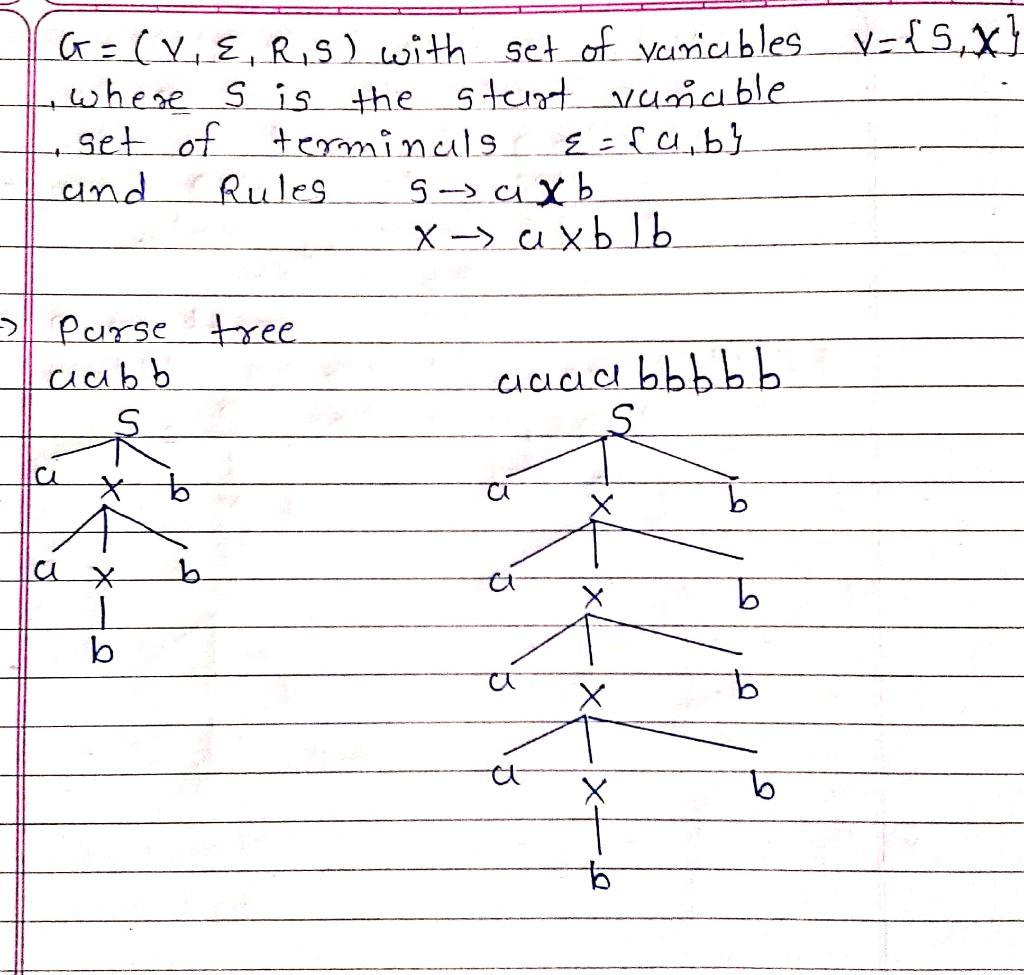 G = (V, Σ, R, S) with set of variables V={S,X}
, where S is the start variable
, set of terminals Σ = {a,b}
and Rules S → a X b
X → a X b | b
⇒ Parse tree
aabb aaaabbbbb
S S
a X b a X b
a X b a X b
b a X b
a X b
b